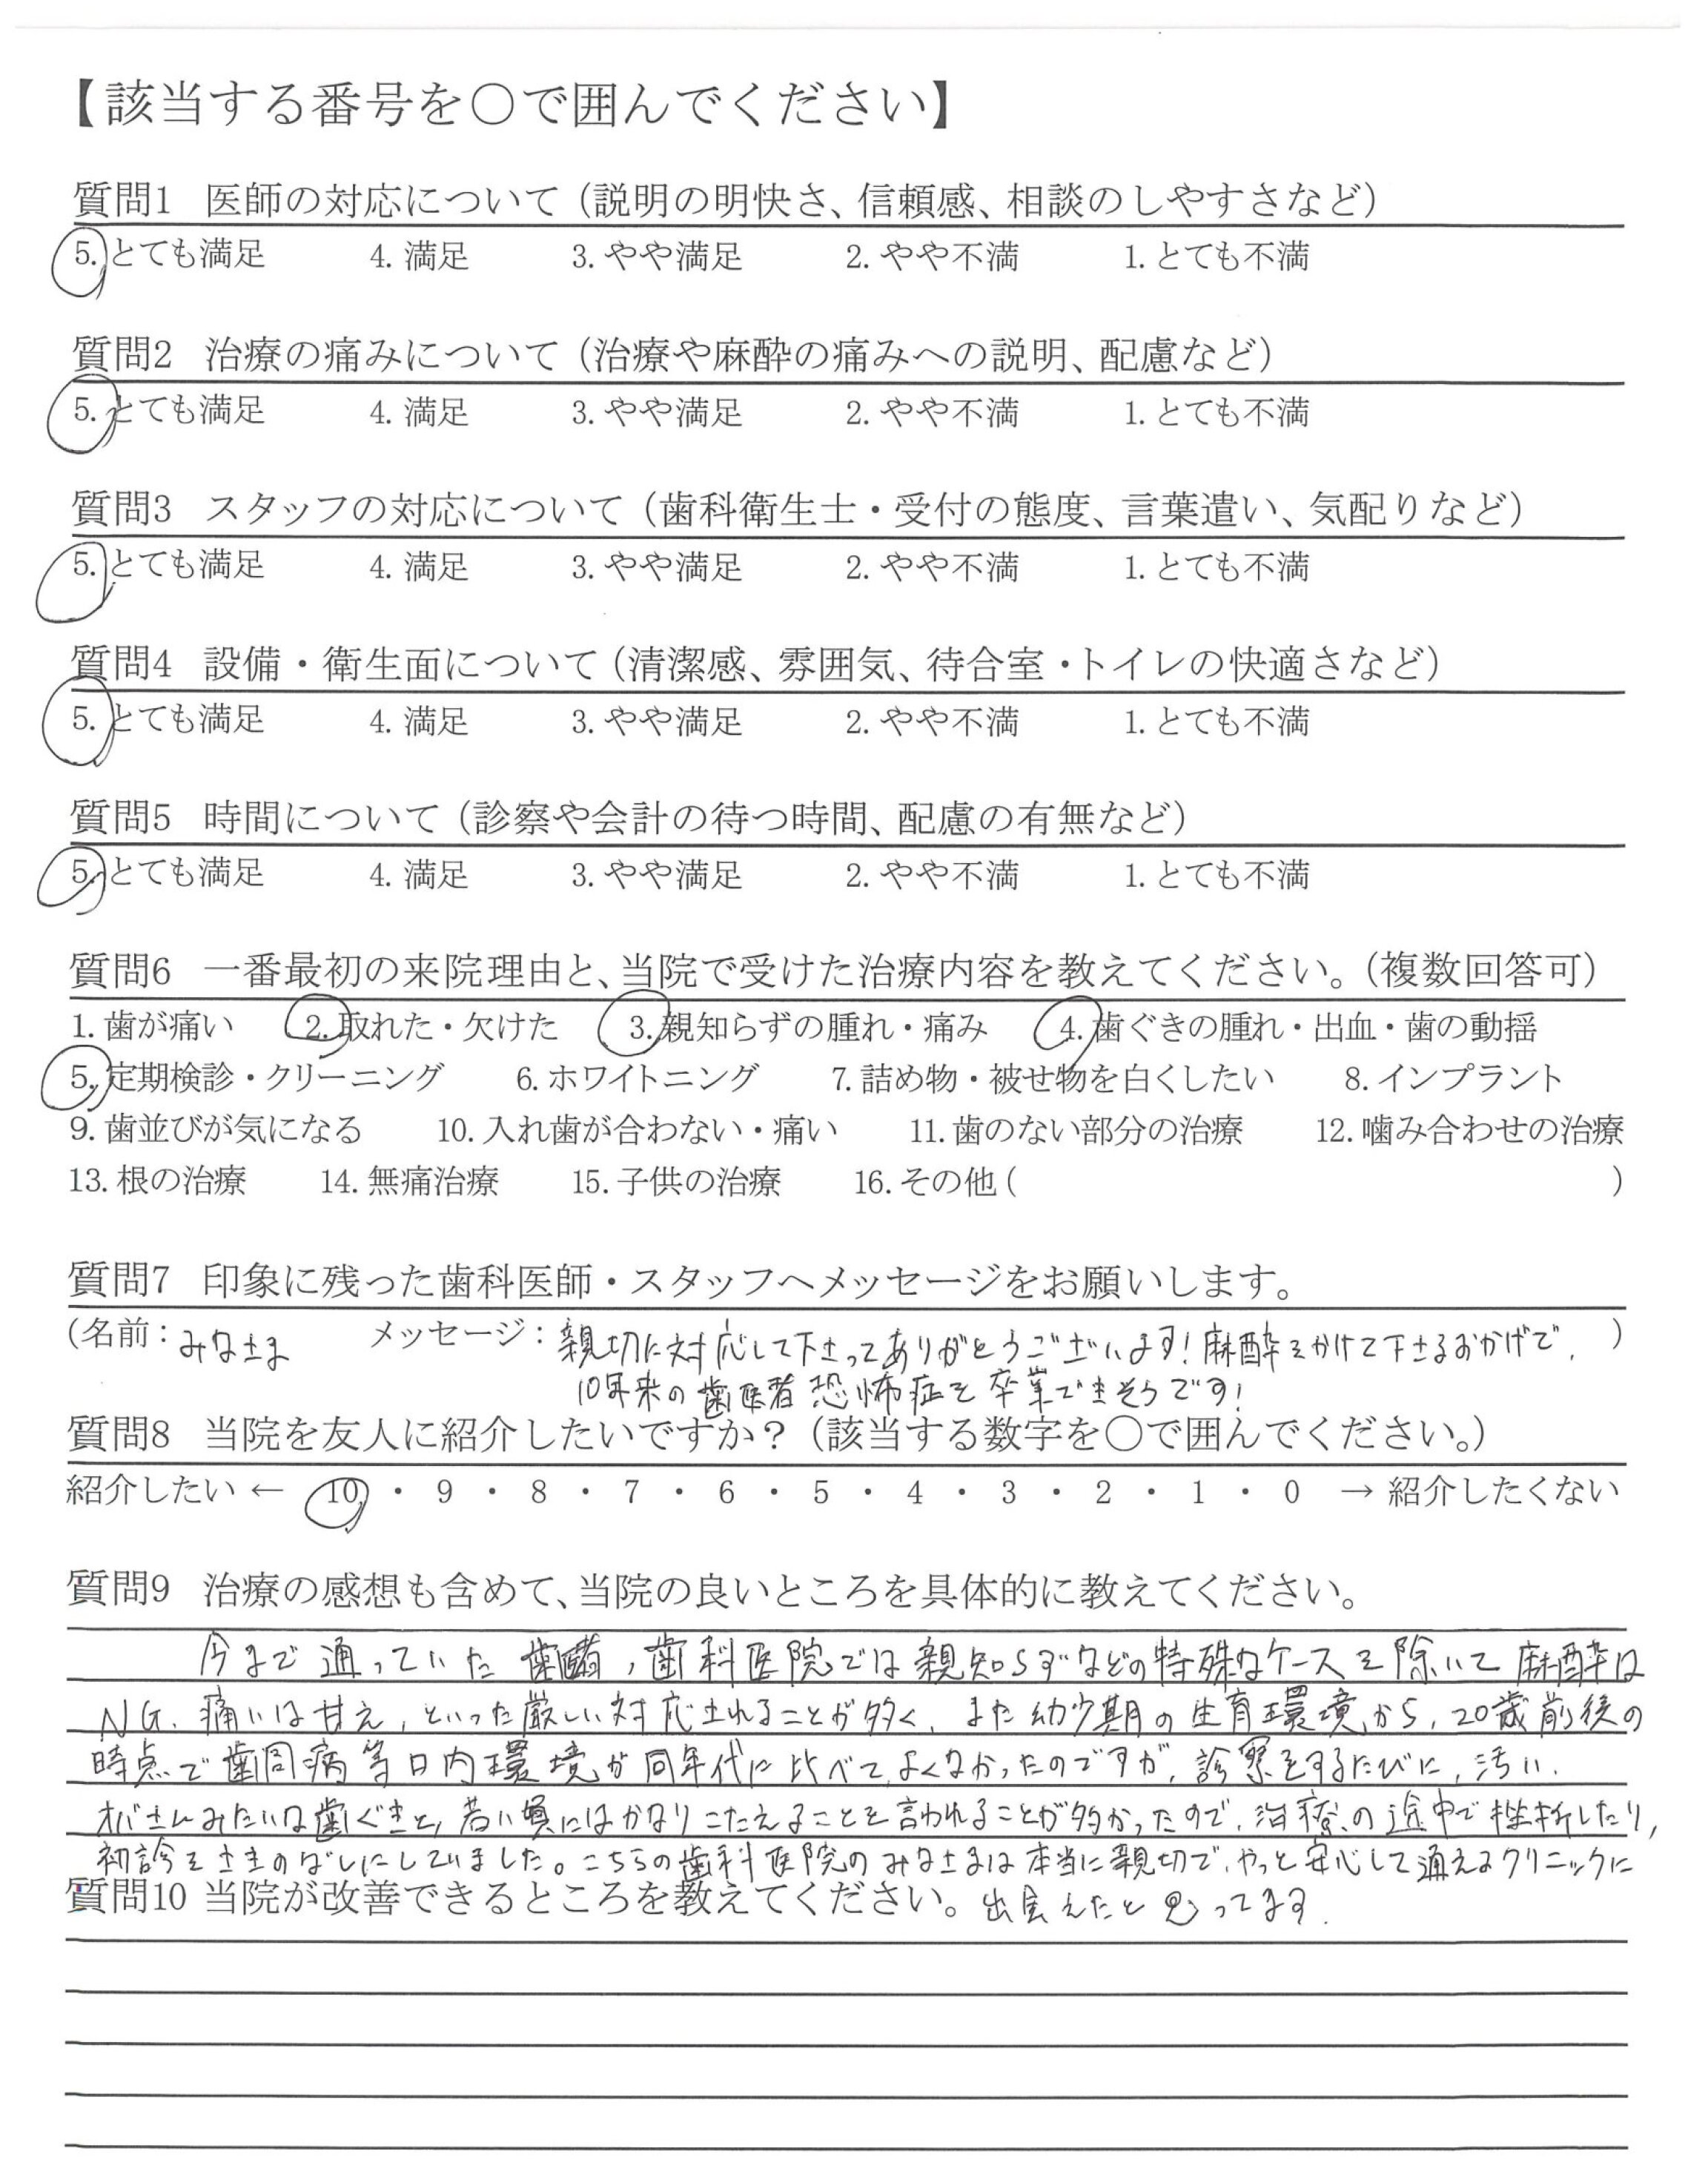 【該当する番号を○で囲んでください】
質問1 医師の対応について（説明の明快さ、信頼感、相談のしやすさなど）
5. とても満足 4. 満足 3. やや満足 2. やや不満 1. とても不満
質問2 治療の痛みについて（治療や麻酔の痛みへの説明、配慮など）
5. とても満足 4. 満足 3. やや満足 2. やや不満 1. とても不満
質問3 スタッフの対応について（歯科衛生士・受付の態度、言葉遣い、気配りなど）
5. とても満足 4. 満足 3. やや満足 2. やや不満 1. とても不満
質問4 設備・衛生面について（清潔感、雰囲気、待合室・トイレの快適さなど）
5. とても満足 4. 満足 3. やや満足 2. やや不満 1. とても不満
質問5 時間について（診察や会計の待つ時間、配慮の有無など）
5. とても満足 4. 満足 3. やや満足 2. やや不満 1. とても不満
質問6 一番最初の来院理由と、当院で受けた治療内容を教えてください。（複数回答可）
1. 歯が痛い 2. 取れた・欠けた 3. 親知らずの腫れ・痛み 4. 歯ぐきの腫れ・出血・歯の動揺
5. 定期検診・クリーニング 6. ホワイトニング 7. 詰め物・被せ物を白くしたい 8. インプラント
9. 歯並びが気になる 10. 入れ歯が合わない・痛い 11. 歯のない部分の治療 12. 噛み合わせの治療
13. 根の治療 14. 無痛治療 15. 子供の治療 16. その他（ ）
質問7 印象に残った歯科医師・スタッフへメッセージをお願いします。
（名前：みなさま メッセージ：親切に対応して下さってありがとうございます！麻酔をかけて下さるおかげで、）
10年来の歯医者恐怖症を卒業できそうです！
質問8 当院を友人に紹介したいですか？（該当する数字を○で囲んでください。）
紹介したい ← 10 ・ 9 ・ 8 ・ 7 ・ 6 ・ 5 ・ 4 ・ 3 ・ 2 ・ 1 ・ 0 → 紹介したくない
質問9 治療の感想も含めて、当院の良いところを具体的に教えてください。
今まで通っていた、歯科医院では親知らずなどの特殊なケースを除いて麻酔は
NG、痛いは甘え、といった厳しい対応されることが多く、また幼少期の生育環境から、20歳前後の
時点で歯周病等口内環境が同年代に比べてよくなかったのですが、診察をするたびに、汚い、
オバさんみたいな歯ぐきと、若い頃にはかなりこたえることを言われることが多かったので、治療の途中で挫折したり、
初診をさきのばしにしていました。こちらの歯科医院のみなさまは本当に親切で、やっと安心して通えるクリニックに
質問10 当院が改善できるところを教えてください。出会えたと思ってます。